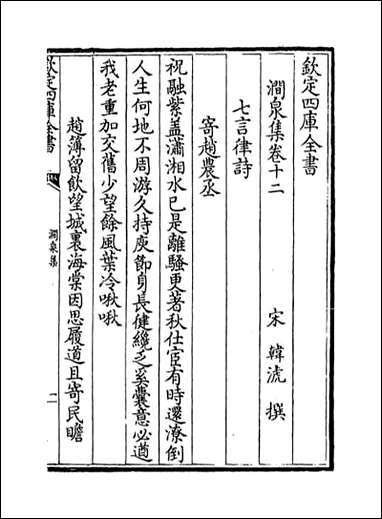 欽定四庫全書
澗泉集卷十二
宋 韓淲 撰
七言律詩
寄趙農丞
祝融紫蓋瀟湘水已是離騷更著秋仕宦有時還潦倒
人生何地不周游久持庾節身長健纔乏奚囊意必遒
我老重加交舊少望餘風葉冷啾啾
趙簿留飲望城裏海棠因思履道且寄民瞻
欽定四庫全書
澗泉集
一